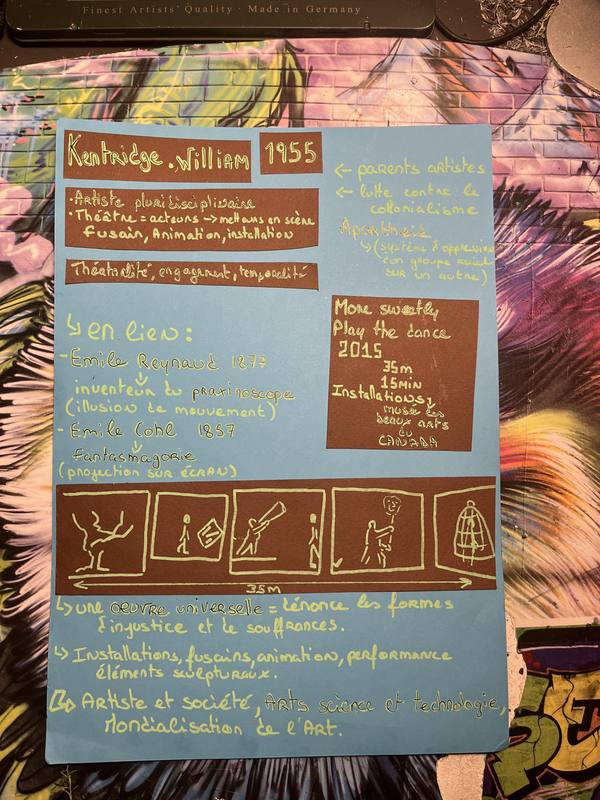 Finest Artists' Quality · Made in Germany
Kentridge.William
1955
← parents artistes
← lutte contre le
collonialisme
Apartheid
↳ (système d'oppression
d'un groupe racial
sur un autre)
• Artiste pluridisciplinaire
• Théâtre = acteurs → metteurs en scène
fusain, Animation, installation
Théatralité, engagement, temporalité
More sweetly
Play the dance
2015
35m
15MIN
Installations
musé des
beaux arts
du
CANADA
↳ en lien :
- Emile Reynaud 1877
inventeur du praxinoscope
(illusion de mouvement)
- Emile Cohl 1857
Fantasmagorie
(projection sur écran)
35m
↳ une œuvre universelle = dénonce les formes
d'injustice et de souffrances.
↳ Installations, fusains, animation, performance
éléments sculpturaux.
↳ Artiste et société, Arts science et technologie,
Mondialisation de l'Art.